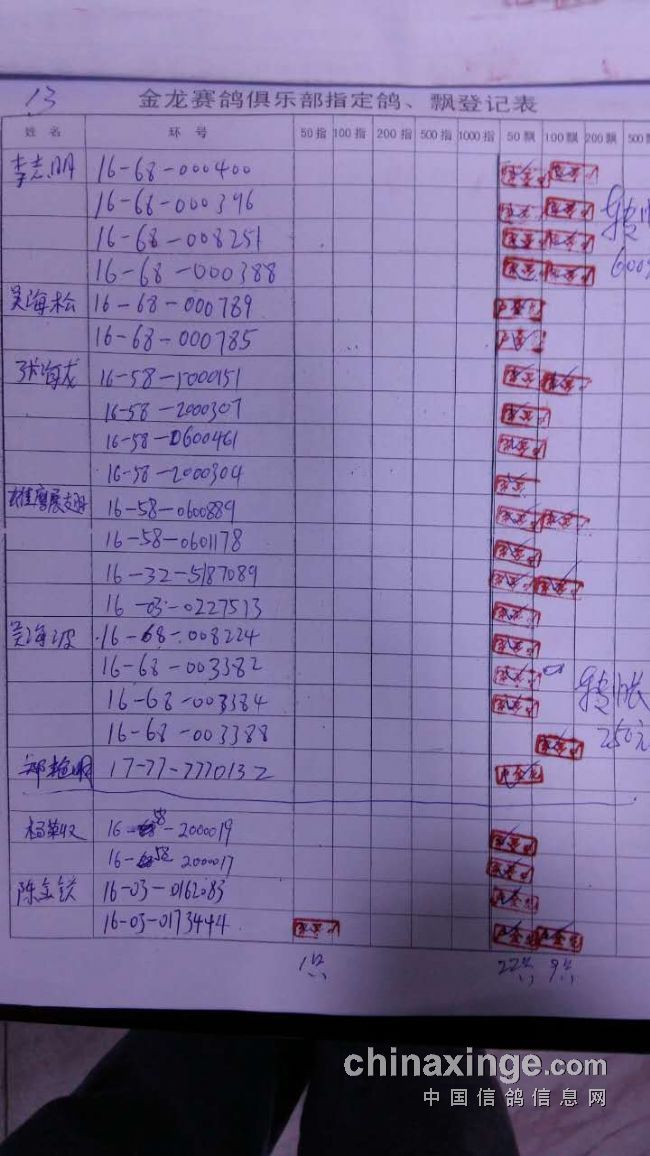 13
金龙赛鸽俱乐部指定鸽、飘登记表
姓 名 环 号 50指 100指 200指 500指 1000指 50飘 100飘 200飘 500
李志明 16-68-000400
16-68-000396
16-68-008251
16-68-000388 600
吴海松 16-68-000789
16-68-000785
张海龙 16-58-1000151
16-58-2000307
16-58-0600461
16-58-2000304
雄鹰展翅 16-58-0600889
16-58-0601178
16-32-5187089
16-03-0227513
吴海波 16-68-008224
16-68-003382
16-68-003384 转帐
16-68-003388 250元
郑艳明 17-77-7770132
16-58-2000019
16-58 2000017
16-03-0162083
16-03-0173444
1 22 9
chinaxinge.com
中国信鸽信息网